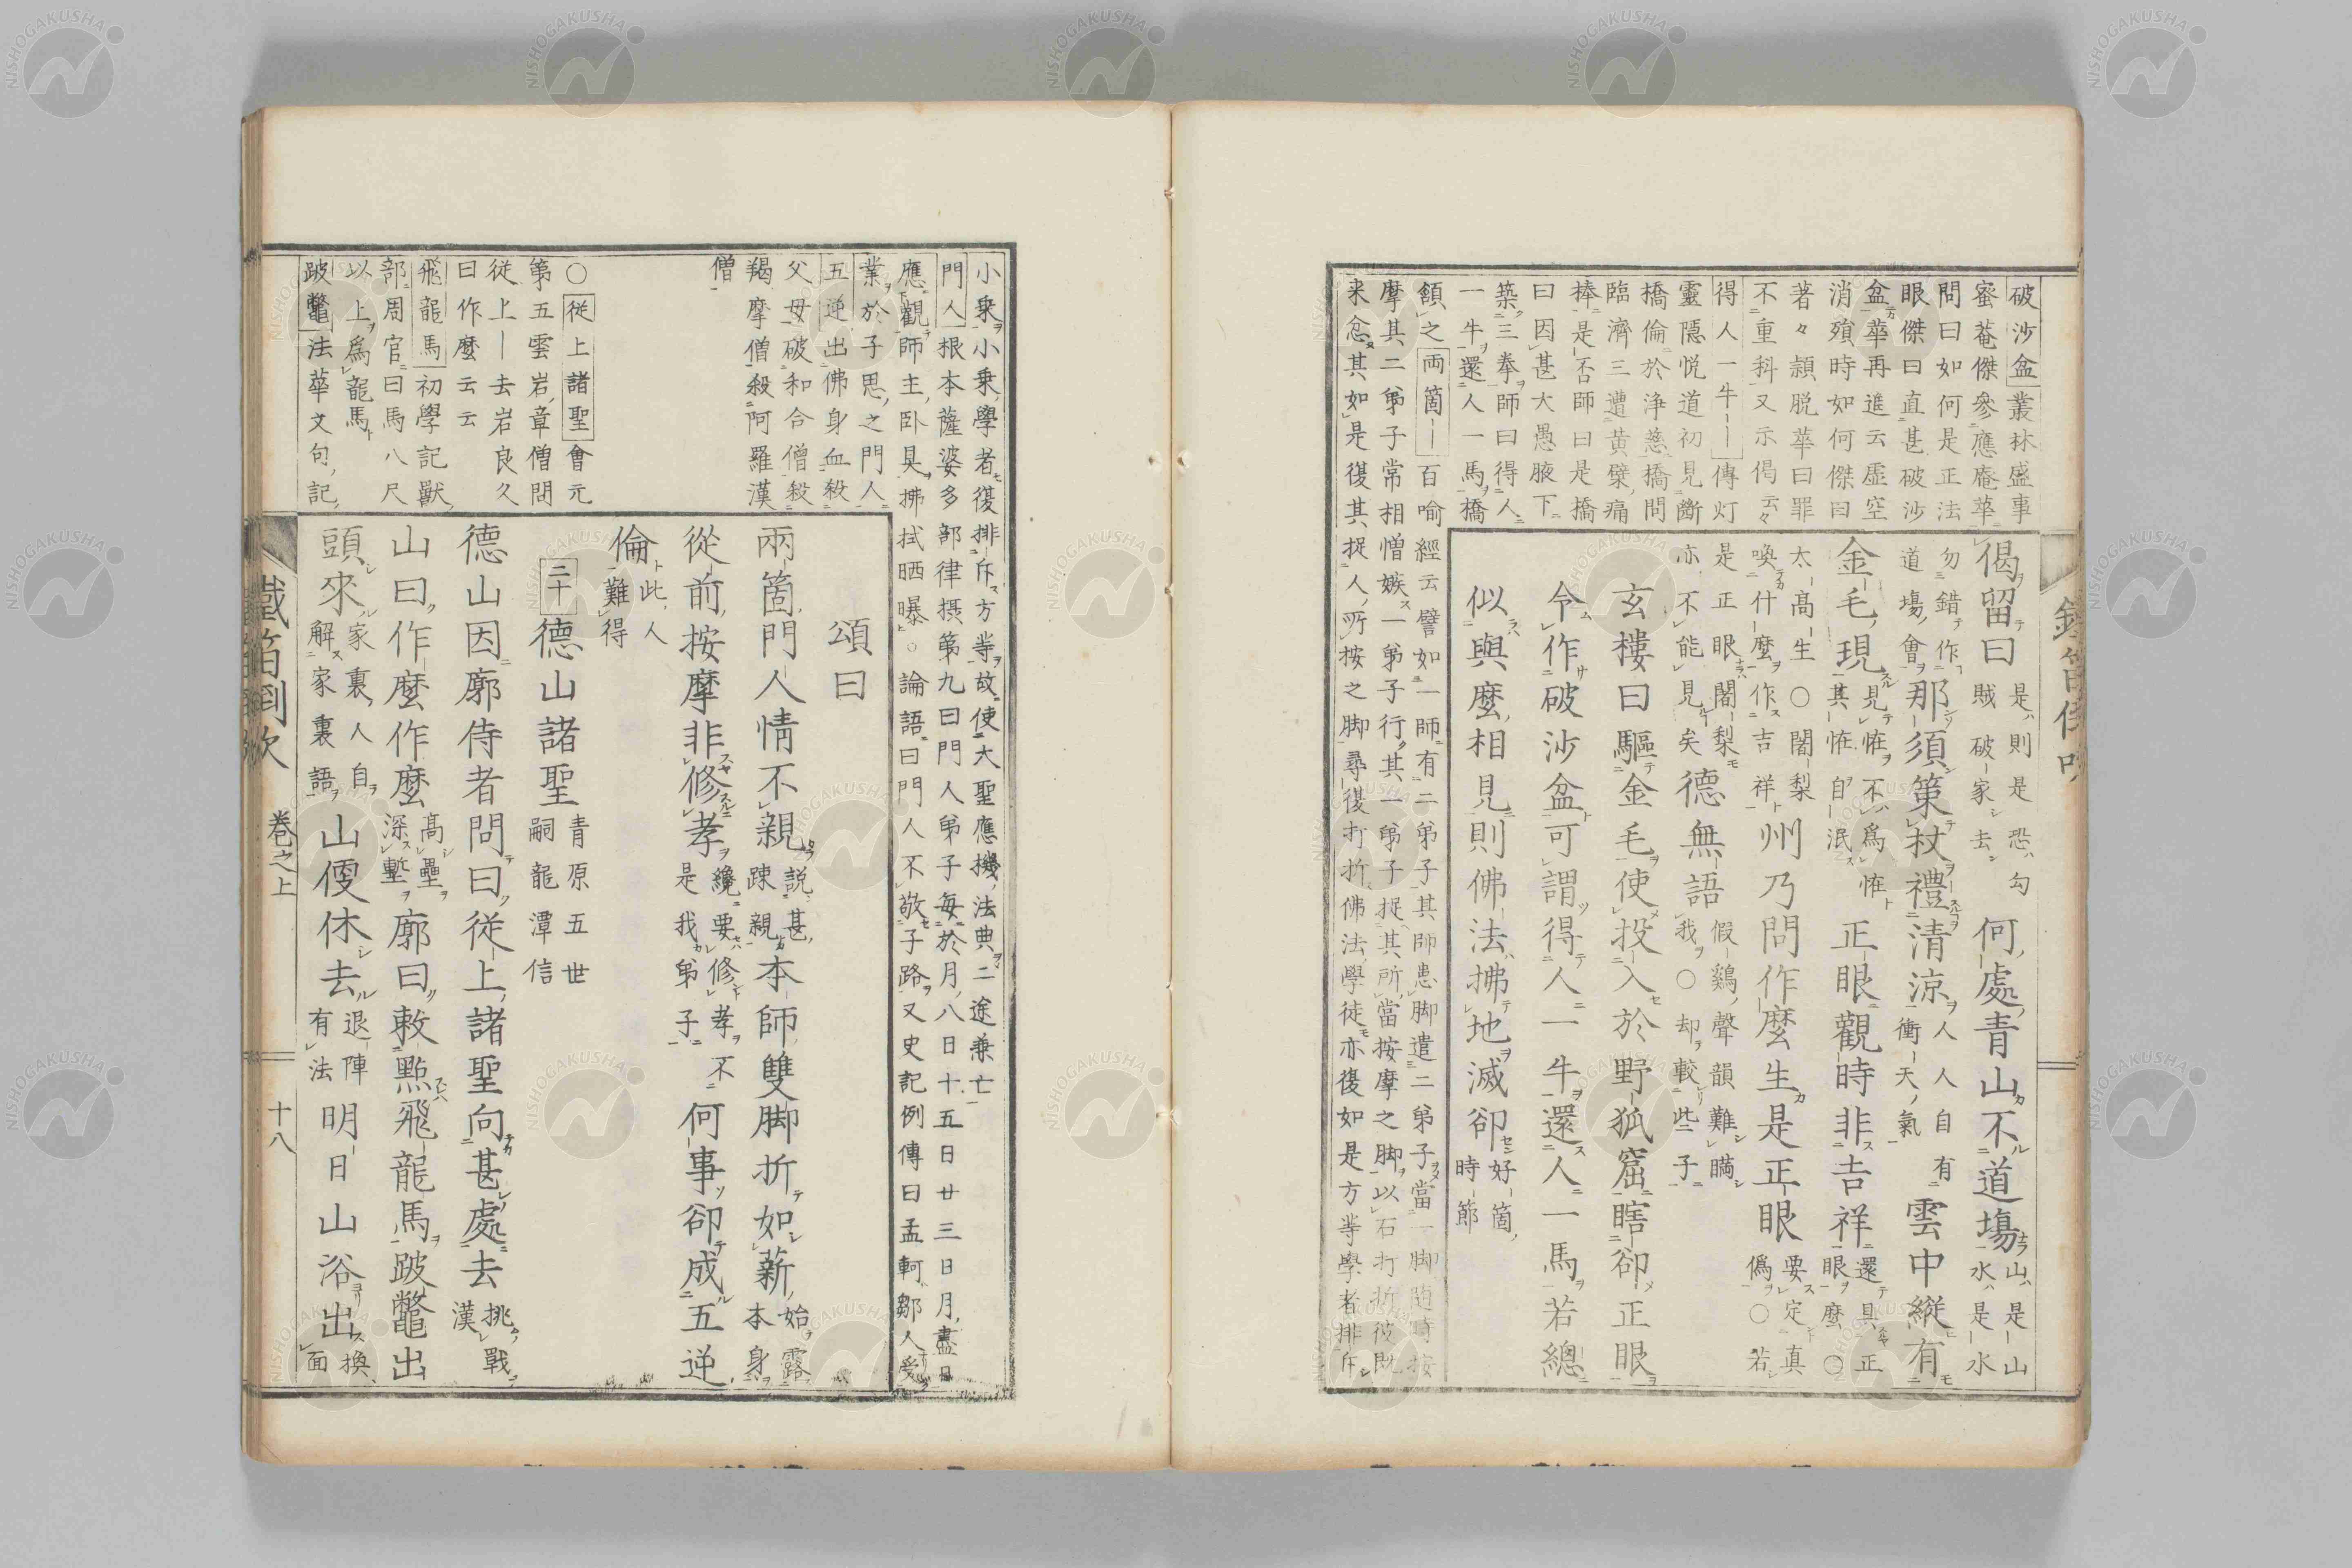 破沙盆叢林盛事
蜜菴傑參應庵華
問曰如何是正法
眼傑曰直甚破沙
盆華再進云虚空
消殞時如何傑曰
著々頴脱華曰罪
不重科又示偈云々
得人一牛ーー傳灯
靈隠悦道初見斷
橋倫於浄慈橋問
臨濟三遭黄檗痛
棒是否師曰是橋
曰因甚大愚腋下
築三拳師曰得人
一牛還人一馬橋
偈留曰是則是恐勾賊破家去何處青山不道場山是山水是水
勿錯作道場會那須策杖禮清涼人人自有衝天氣雲中縱有
金毛現見恠不為恠其恠自泯正眼觀時非吉祥還具正眼麼○
太高生○闍梨喚什麼作吉祥州乃問作麼生是正眼要定真僞○若
是正眼闍梨亦不能見矣德無語假鷄聲韻難瞞我○却較些子
玄樓曰驅金毛使投入於野狐窟瞎卻正眼
令作破沙盆可謂得人一牛還人一馬若總
似與麼相見則佛法拂地滅卻好箇時節
頷之両箇ー百喻經云譬如一師有二弟子其師患脚遣二弟子當一脚随時按
摩其二弟子常相憎嫉一弟子行其一弟子捉其所當按摩之脚以石打折彼既
来忿其如是復其捉人所按之脚尋復打折佛法學徒亦復如是方等學者排斥
小乗小乗學者復排斥方等故使大聖應機法典二途乗亡
門人根本薩婆多部律摂第九曰門人弟子毎於月八日十五日廿三日月盡日
應觀師主卧具拂拭晒曝○論語曰門人不敬子路又史記例傳曰孟軻鄒人受
業於子思之門人
五逆出佛身血殺
父母破和合僧殺
羯摩僧殺阿羅漢
僧
頌曰
兩箇門人情不親説甚踈親本師雙脚折如薪始露本身
從前按摩非修孝纔要修孝不是我弟子何事卻成五逆
倫此人難得
○從上諸聖會元
第五雲岩章僧問
従上ー去岩良久
曰作麼云云
飛龍馬初學記獸
部周官曰馬八尺
以上爲龍馬
跛鼈法華文句記
三十德山諸聖青原五世嗣龍潭信
德山因廓侍者問曰從上諸聖向甚處去挑戰漢
山曰作麼作麼高壘深塹廓曰敕點飛龍馬跛鼈出
頭來家裏人自解家裏語山便休去退陣有法明日山浴出換面
鐵笛倒吹 巻之上 十八